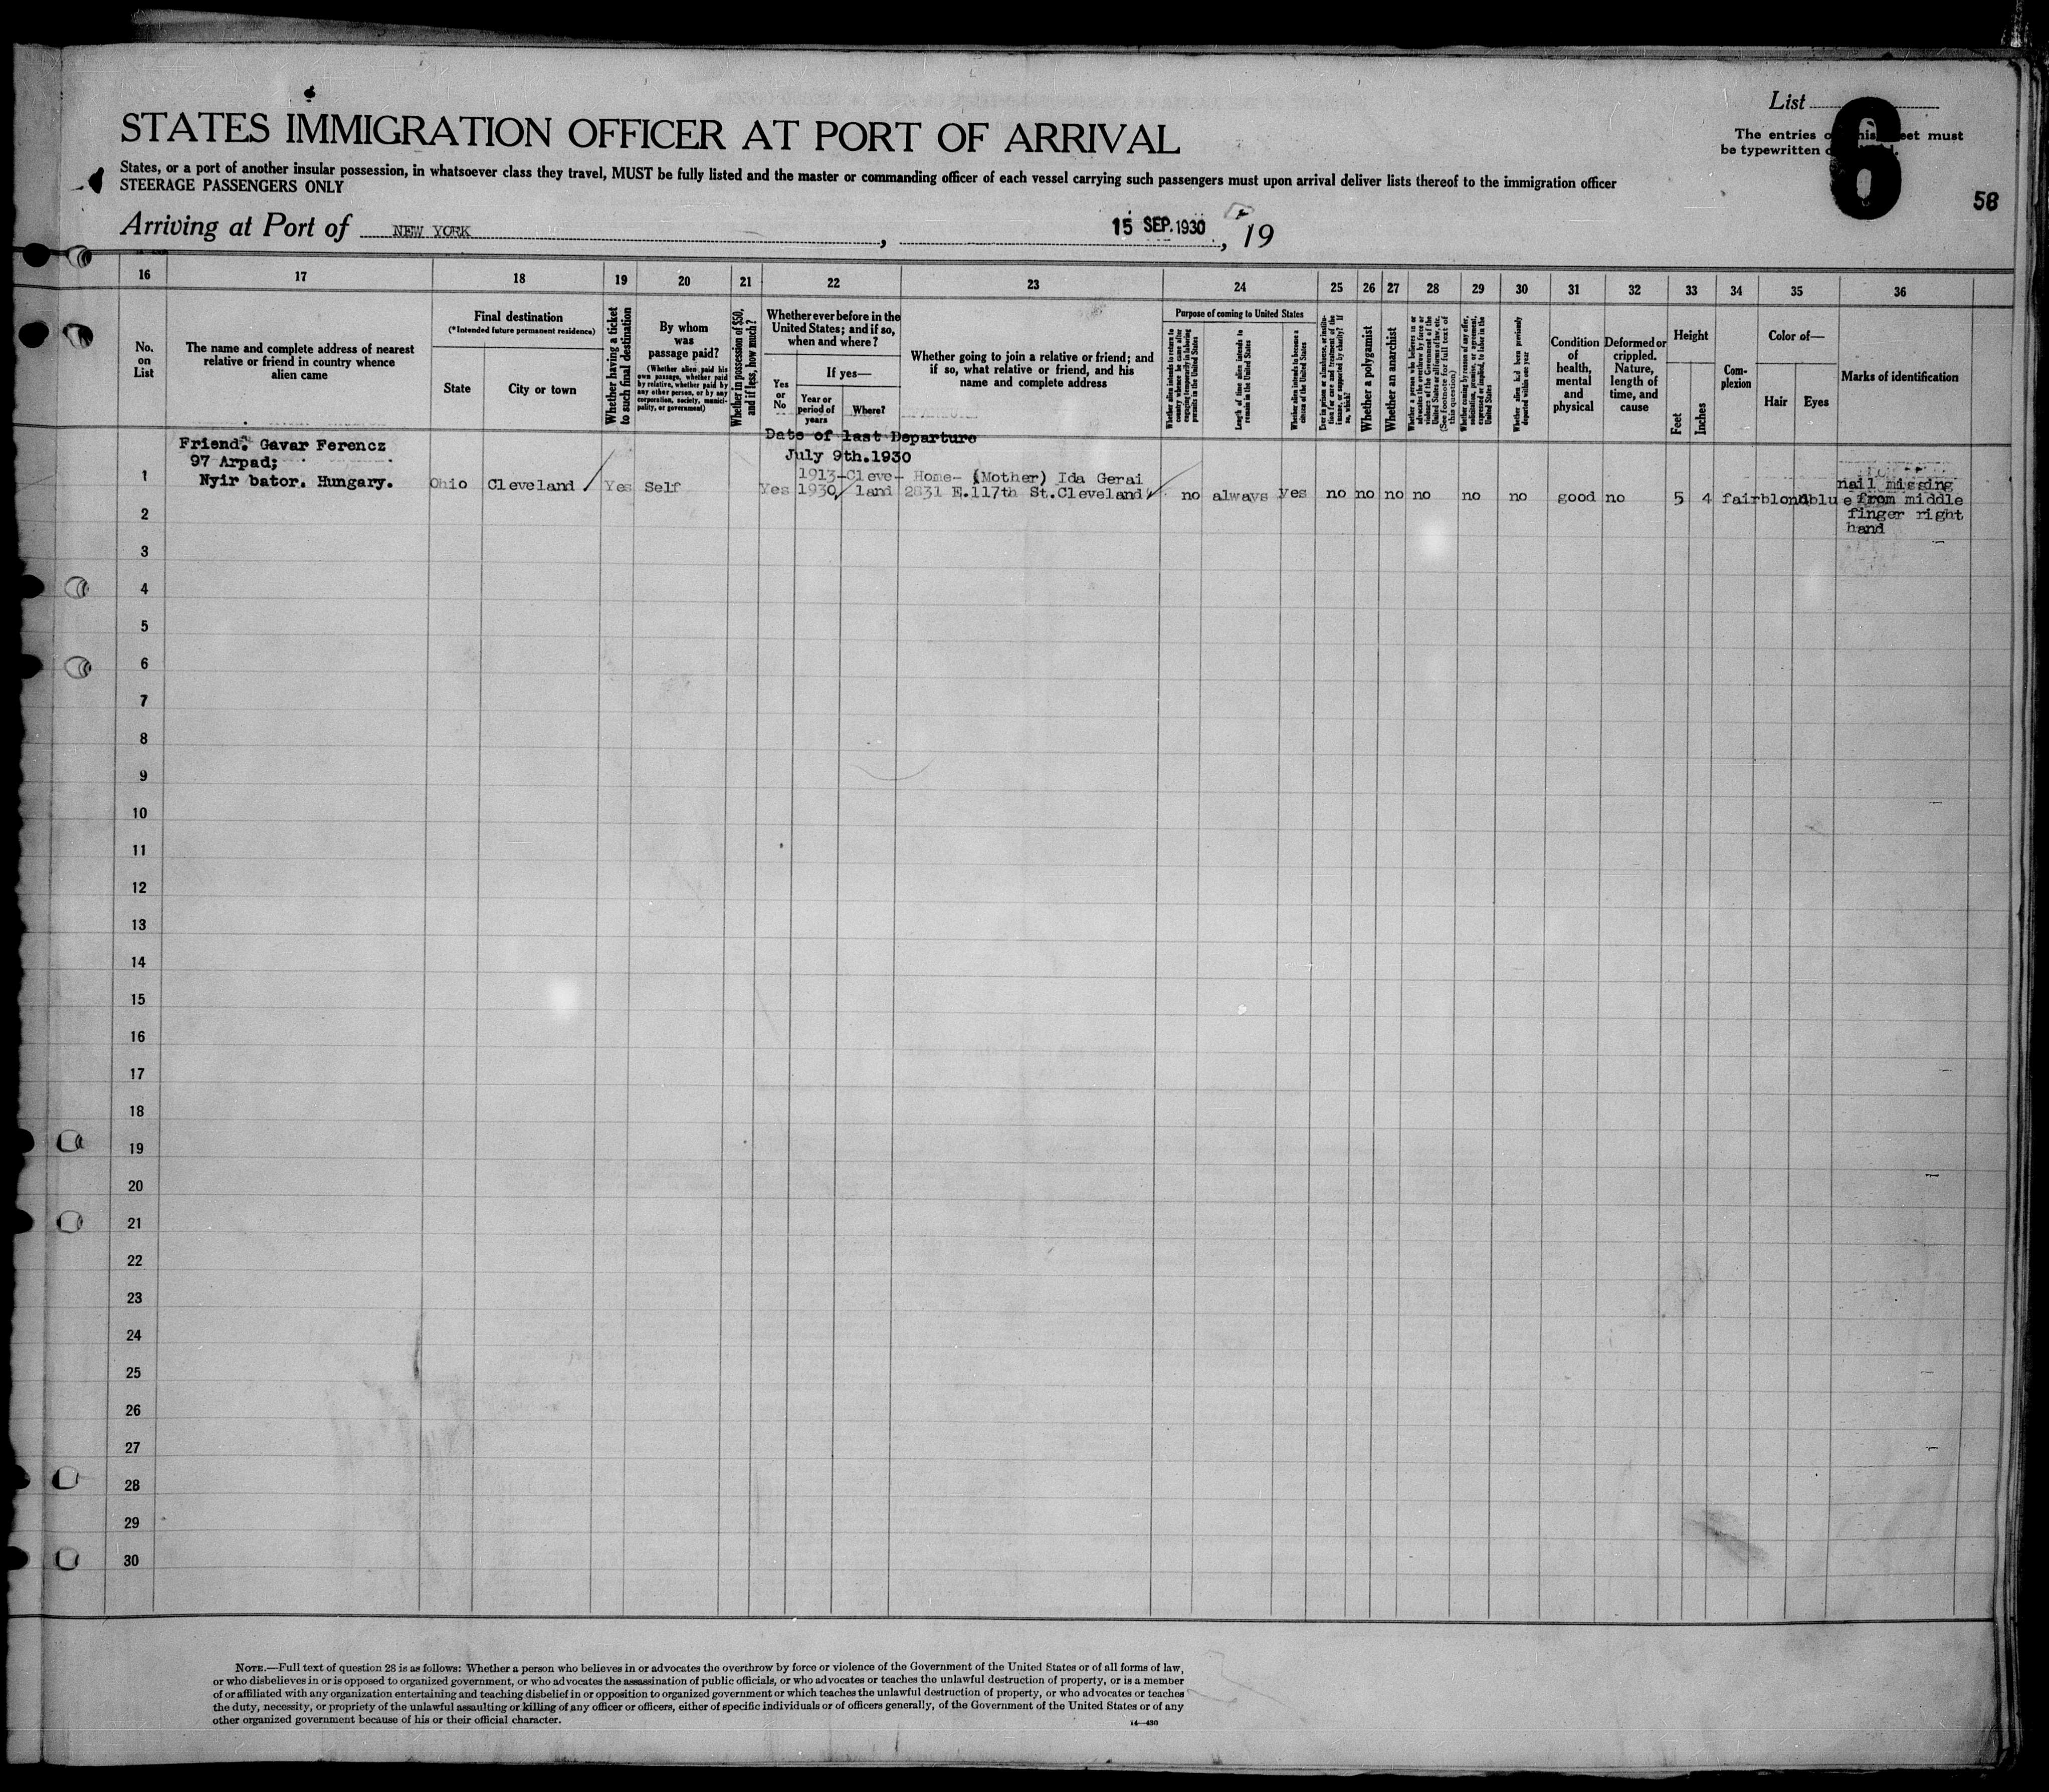 List
6
The entries o his eet must
be typewritten
STATES IMMIGRATION OFFICER AT PORT OF ARRIVAL
States, or a port of another insular possession, in whatsoever class they travel, MUST be fully listed and the master or commanding officer of each vessel carrying such passengers must upon arrival deliver lists thereof to the immigration officer
STEERAGE PASSENGERS ONLY
58
Arriving at Port of NEW YORK, 15 SEP. 1930, 19
16 17 18 19 20 21 22 23 24 25 26 27 28 29 30 31 32 33 34 35 36
No.
on
List
The name and complete address of nearest
relative or friend in country whence
alien came
Final destination
(*Intended future permanent residence)
State
City or town
Whether having a ticket
to such final destination
By whom
was
passage paid?
(Whether alien paid his
own passage, whether paid
by relative, whether paid by
any other person, or by any
corporation, society, munici-
pality, or government)
Whether in possession of $50,
and if less, how much?
Whether ever before in the
United States; and if so,
when and where?
Yes
or
No
If yes—
Year or
period of
years
Where?
Whether going to join a relative or friend; and
if so, what relative or friend, and his
name and complete address
Purpose of coming to United States
Whether alien intends to return to
country whence he came after
engaging temporarily in laboring
pursuits in the United States
Length of time alien intends to
remain in the United States
Whether alien intends to become a
citizen of the United States
Ever in prison or almshouse, or institu-
tion for care and treatment of the
insane, or supported by charity? If
so, which?
Whether a polygamist
Whether an anarchist
Whether a person who believes in or
advocates the overthrow by force or
violence of the Government of the
United States or all forms of law, etc.
(See footnote for full text of
this question)
Whether coming by reason of any offer,
solicitation, promise, or agreement,
expressed or implied, to labor in the
United States
Whether alien had been previously
deported within one year
Condition
of
health,
mental
and
physical
Deformed or
crippled.
Nature,
length of
time, and
cause
Height
Feet
Inches
Com-
plexion
Color of—
Hair
Eyes
Marks of identification
Date of last Departure
July 9th.1930
Friend: Gavar Ferencz
97 Arpad;
Nyir bator. Hungary.
1 Ohio Cleveland Yes Self Yes
1913- Cleve-
1930 land
Home- (Mother) Ida Gerai
2831 E.117th St.Cleveland
no always yes no no no no no no good no 5 4 fair blond blue
nail missing
from middle
finger right
hand
2
3
4
5
6
7
8
9
10
11
12
13
14
15
16
17
18
19
20
21
22
23
24
25
26
27
28
29
30
NOTE.—Full text of question 28 is as follows: Whether a person who believes in or advocates the overthrow by force or violence of the Government of the United States or of all forms of law,
or who disbelieves in or is opposed to organized government, or who advocates the assassination of public officials, or who advocates or teaches the unlawful destruction of property, or is a member
of or affiliated with any organization entertaining and teaching disbelief in or opposition to organized government or which teaches the unlawful destruction of property, or who advocates or teaches
the duty, necessity, or propriety of the unlawful assaulting or killing of any officer or officers, either of specific individuals or of officers generally, of the Government of the United States or of any
other organized government because of his or their official character.
14—430